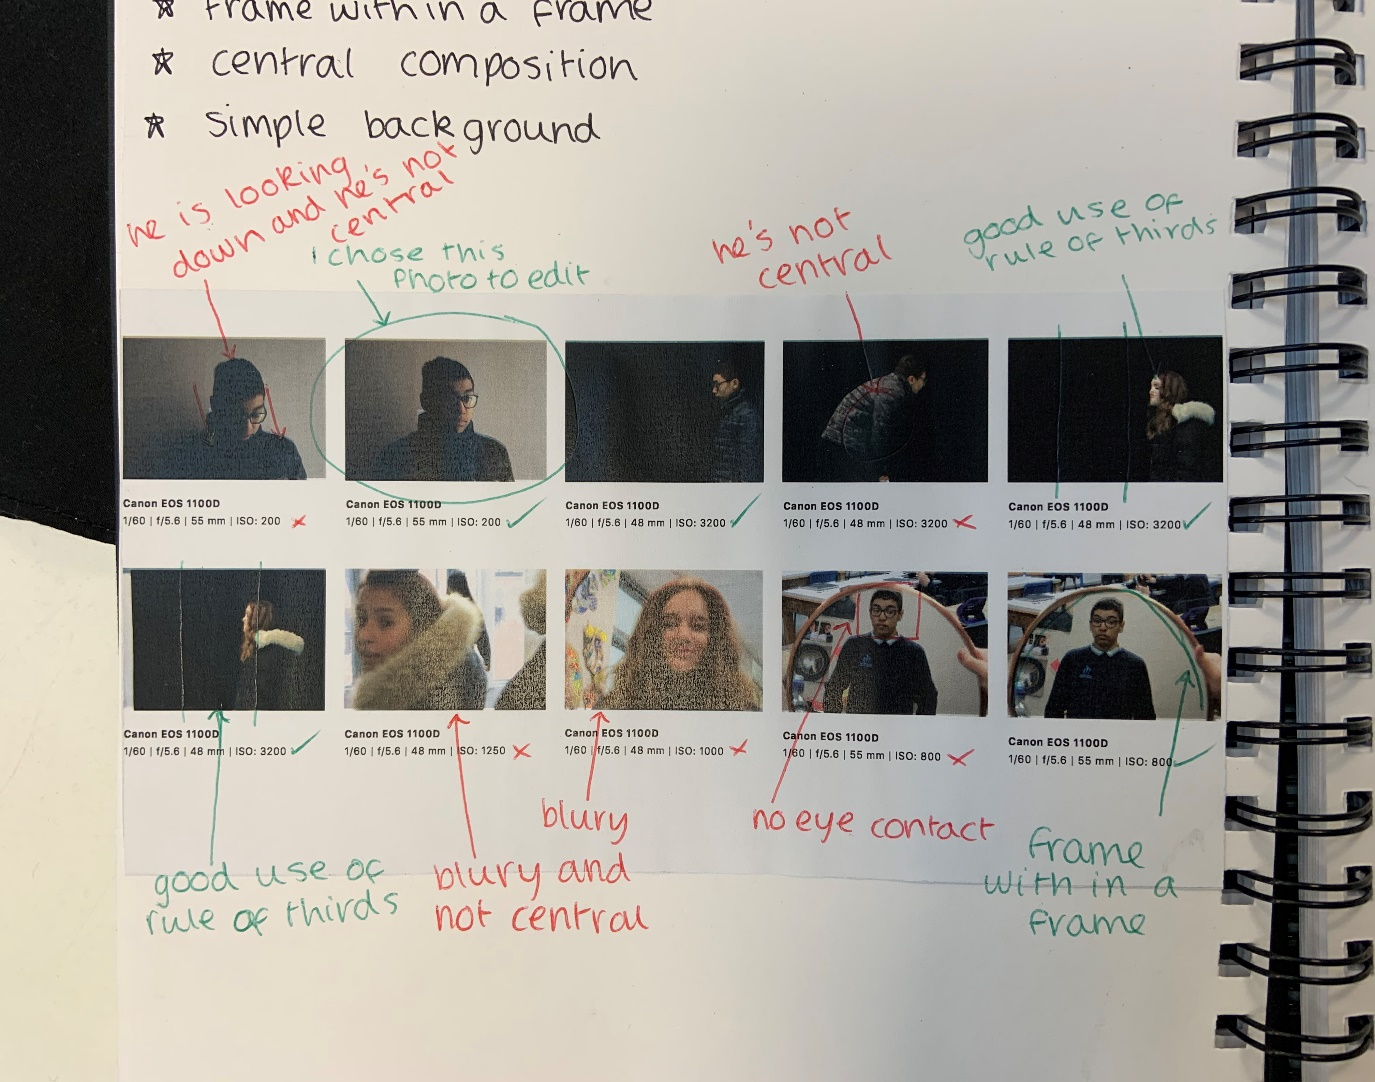 frame with in a frame
central composition
simple background
he is looking
down and he's not
central
I chose this
photo to edit
he's not
central
good use of
rule of thirds
Canon EOS 1100D
1/60 | f/5.6 | 55 mm | ISO: 200
Canon EOS 1100D
1/60 | f/5.6 | 55 mm | ISO: 200
Canon EOS 1100D
1/60 | f/5.6 | 48 mm | ISO: 3200
Canon EOS 1100D
1/60 | f/5.6 | 48 mm | ISO: 3200
Canon EOS 1100D
1/60 | f/5.6 | 48 mm | ISO: 3200
Canon EOS 1100D
1/60 | f/5.6 | 48 mm | ISO: 3200
Canon EOS 1100D
1/60 | f/5.6 | 48 mm | ISO: 1250
Canon EOS 1100D
1/60 | f/5.6 | 48 mm | ISO: 1000
Canon EOS 1100D
1/60 | f/5.6 | 55 mm | ISO: 800
Canon EOS 1100D
1/60 | f/5.6 | 55 mm | ISO: 800
good use of
rule of thirds
blury and
not central
blury
no eye contact
frame
with in a
frame